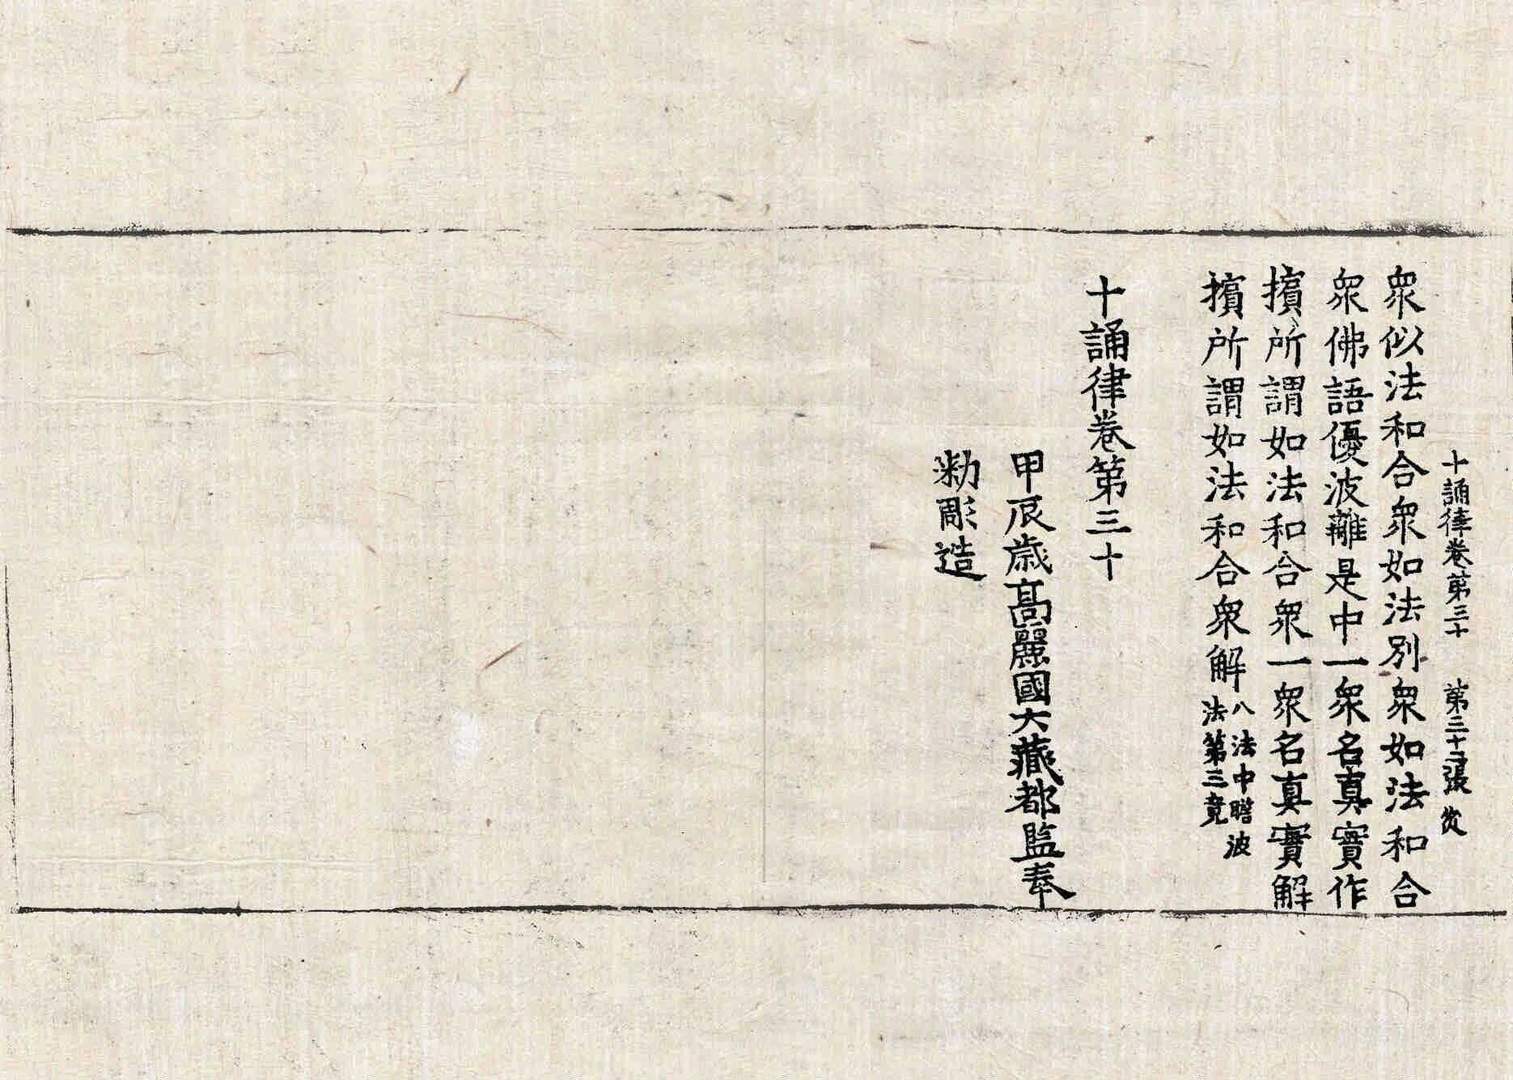 十誦律卷第三十 第張
眾似法和合眾如法別眾如法和合
眾佛語優波離是中一眾名真實作
擯所謂如法和合眾一眾名真實解
擯所謂如法和合眾解
八法中瞻波
法第三竟
十誦律卷第三十
甲辰歲高麗國大藏都監奉
勅彫造